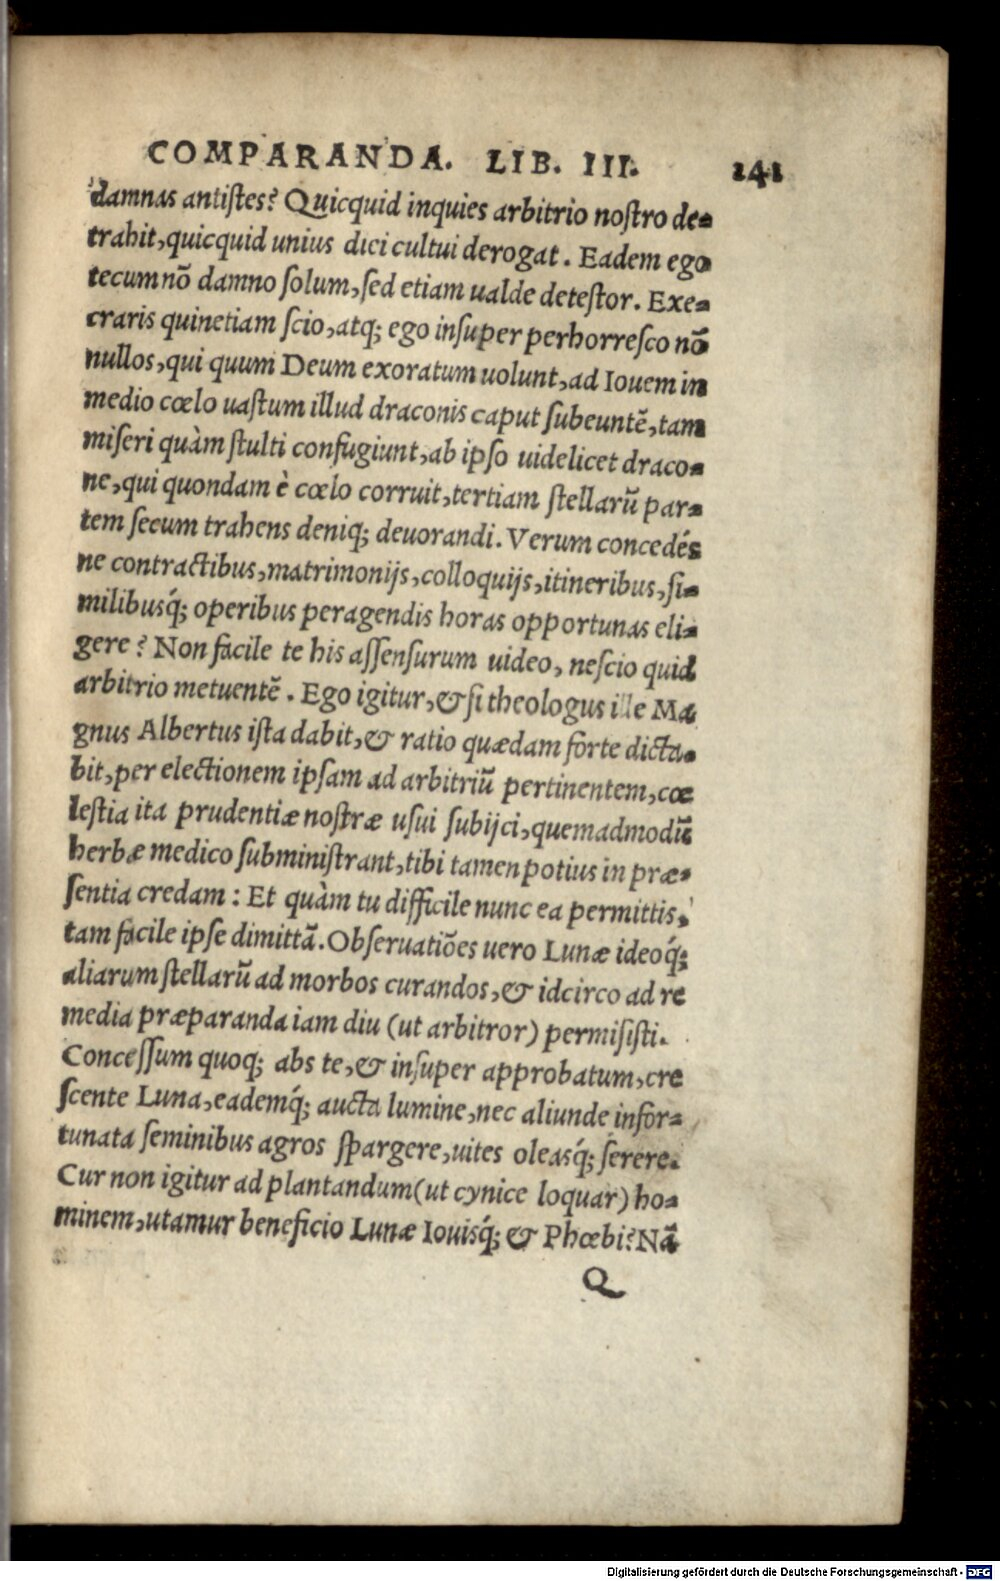 COMPARANDA. LIB. III. 241
damnas antistes? Quicquid inquies arbitrio nostro de-
trahit, quicquid unius dici cultui derogat. Eadem ego
tecum nõ damno solum, sed etiam ualde detestor. Exe-
craris quinetiam scio, atq; ego insuper perhorresco nõ
nullos, qui quum Deum exoratum uolunt, ad Iouem in
medio cœlo uastum illud draconis caput subeuntẽ, tam
miseri quàm stulti confugiunt, ab ipso uidelicet draco-
ne, qui quondam è cœlo corruit, tertiam stellarũ par-
tem secum trahens deniq; deuorandi. Verum concedés
ne contractibus, matrimonijs, colloquijs, itineribus, si-
milibusq́; operibus peragendis horas opportunas eli-
gere? Non facile te his assensurum uideo, nescio quid
arbitrio metuentẽ. Ego igitur, & si theologus ille Ma
gnus Albertus ista dabit, & ratio quædam forte dicta-
bit, per electionem ipsam ad arbitriũ pertinentem, cœ
lestia ita prudentiæ nostræ usui subijci, quemadmodũ
herbæ medico subministrant, tibi tamen potius in præ-
sentia credam: Et quàm tu difficile nunc ea permittis,
tam facile ipse dimittã. Obseruatiões uero Lunæ ideoq́;
aliarum stellarũ ad morbos curandos, & idcirco ad re
media præparanda iam diu (ut arbitror) permisisti.
Concessum quoq; abs te, & insuper approbatum, cre
scente Luna, eademq́; aucta lumine, nec aliunde infor-
tunata seminibus agros spargere, uites oleasq́; serere.
Cur non igitur ad plantandum (ut cynice loquar) ho-
minem, utamur beneficio Lunæ Iouisq́; & Phœbi? Nã
Q
Digitalisierung gefördert durch die Deutsche Forschungsgemeinschaft - DFG